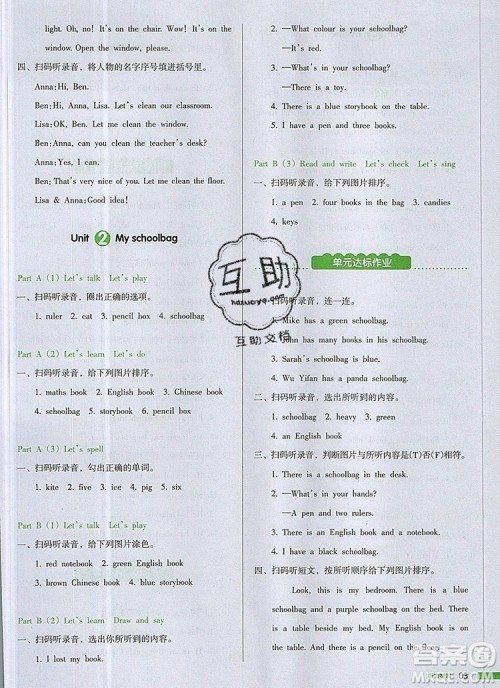 light. Oh, no! It's on the chair. Wow! It's on
the window. Open the window, please.
四、扫码听录音，将人物的名字序号填进括号里。
Anna:Hi, Ben.
Ben:Hi, Anna, Lisa. Let's clean our classroom.
Lisa:OK, Ben. Let me clean the window.
Ben:Anna, can you clean the teacher's desk?
Anna:Yes, I can.
Ben:That's very nice of you. Let me clean the floor.
Lisa & Anna:Good idea!
Unit 2 My schoolbag
Part A (1) Let's talk Let's play
一、扫码听录音，圈出正确的选项。
1. ruler 2. cat 3. pencil box 4. schoolbag
Part A (2) Let's learn Let's do
一、扫码听录音，给下列图片排序。
1. maths book 2. English book 3. Chinese book
4. schoolbag 5. storybook 6. pencil box
Part A (3) Let's spell
一、扫码听录音，勾出正确的单词。
1. kite 2. five 3. ice 4. pig 5. nine
Part B (1) Let's talk Let's play
一、扫码听录音，给下列图片涂色。
1. red notebook 2. green English book
3. brown Chinese book 4. blue storybook
Part B (2) Let's learn Draw and say
一、扫码听录音，选出你所听到的内容。
1. I lost my book.
2. —What colour is your schoolbag?
—It's red.
3. —What's in your schoolbag?
—Some candies.
4. There is a blue storybook on the table.
5. I have a pen and three books.
Part B (3) Read and write Let's check Let's sing
一、扫码听录音，给下列图片排序。
1. a pen and four books in the bag 2. candies
3. a phone 4. toys
4. keys
单元达标作业
一、扫码听录音，连一连。
1. Mike has a green schoolbag.
2. John has many books in his schoolbag.
3. Sarah's schoolbag is blue.
4. Wu Yifan has a panda schoolbag.
二、扫码听录音，选出所听到的内容。
1. schoolbag 2. eraser 3. candy
4. an English book
三、扫码听录音，判断图片与所听内容是(T)否(F)相符。
1. There is a schoolbag on the table.
2. —What's in your hand?
—A pen and two rulers.
3. There is an English book and a storybook.
4. I have a black schoolbag.
四、扫码听短文，按所听顺序给下列图片排序。
Look, this is my bedroom. There is a blue
schoolbag and a purple schoolbag on the bed. There
is a table between the beds. My English book is
on the table. There is a pencil on the floor. There
03
互助
hdzuoye.com
互助文档
答案圈